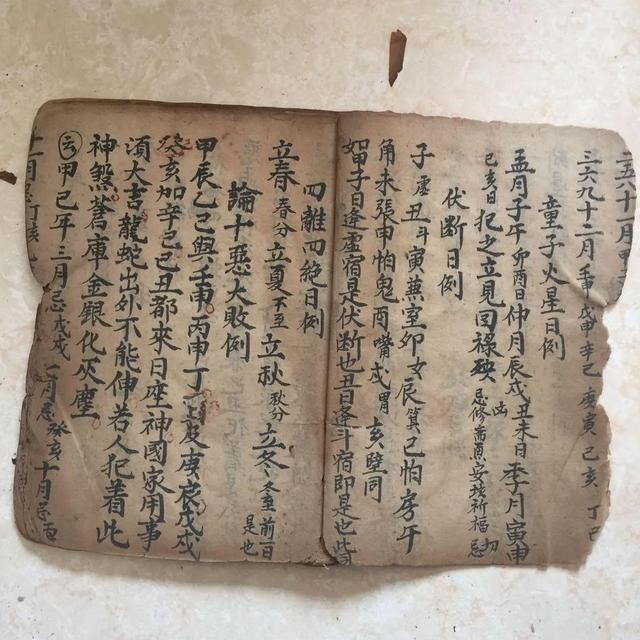 二五六十一月
三六九十二月 壬申 戊申 辛巳 庚寅 己亥 丁
童子火星日例
孟月子午卯酉日仲月辰戌丑未日季月寅申
巳亥日犯之立見回祿殃 凶 忌修齋安坟祈福切忌
伏断日例
子虛丑斗寅燕室卯女辰箕巳怕房午
角未張申怕鬼酉嘴戌胃亥壁同
如子日逢虛宿是伏断也丑日逢斗宿即是也皆
四離四絶日例
立春 春分 立夏 下至 立秋 秋分 立冬 冬至 前一日是也
論十惡大敗例
甲辰乙巳與壬申丙申丁亥及庚辰戊戌
癸亥加辛巳己丑都來日座神國家用事
須大吉龍蛇出外不能伸若人犯着此
神煞蒼庫金銀化灰塵
云甲己年三月忌戊戌七月忌癸亥十月忌
十一月忌丁亥